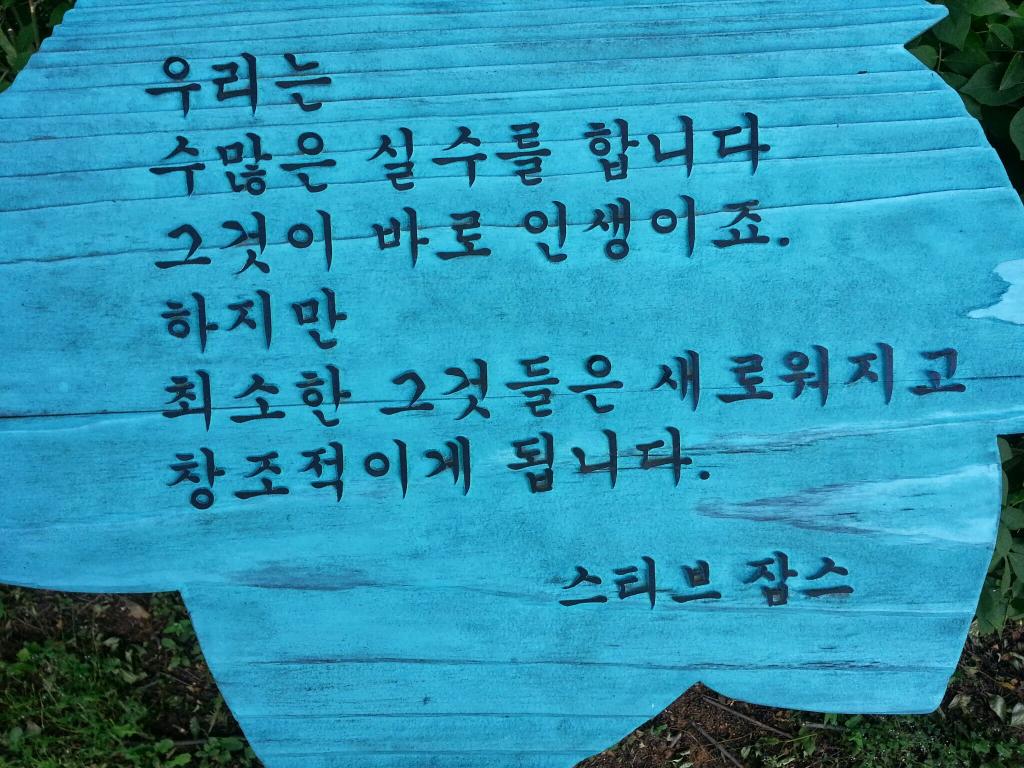 우리는
수많은 실수를 합니다
그것이 바로 인생이죠.
하지만
최소한 그것들은 새로워지고
창조적이게 됩니다.
스티브 잡스